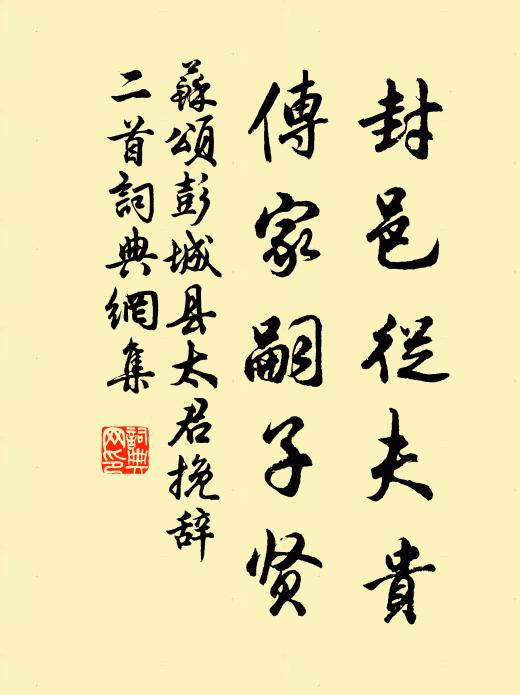 封邑從夫貴
傳家嗣子贤
蘇頌彭城县太君挽辞
二首詞典網集
詞典
网印